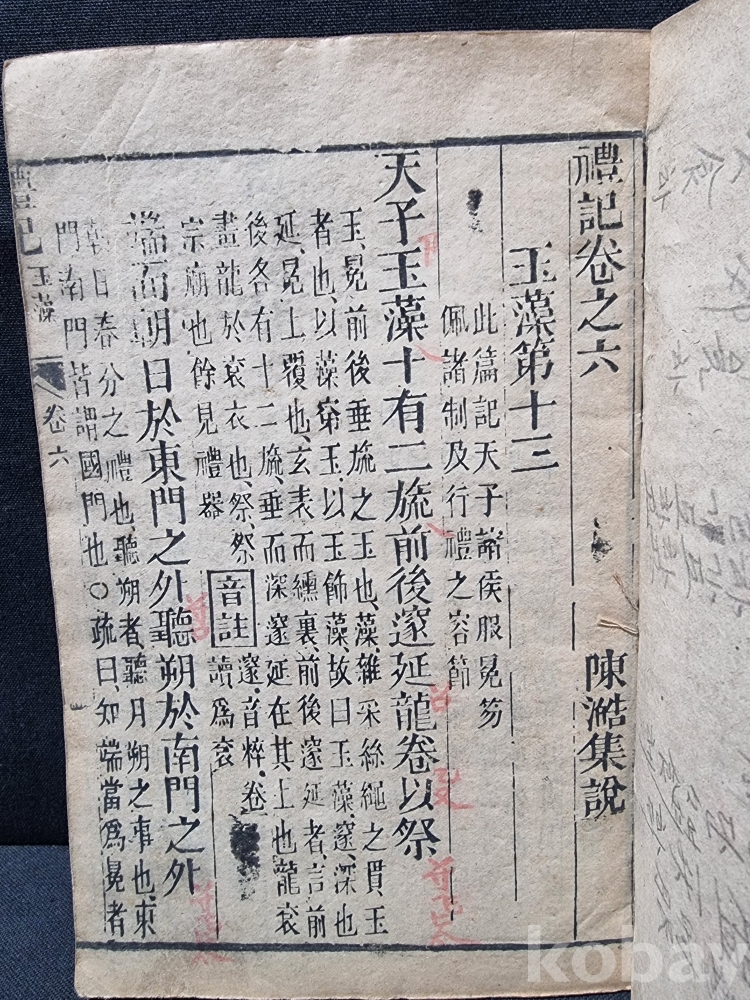 禮記卷之六
陳澔集說
玉藻第十三
此篇記天子諸侯服冕笏
佩諸制及行禮之容節
天子玉藻十有二旒前後邃延龍卷以祭
玉、冕前後垂旒之玉也、藻、雜采絲繩之貫、玉
者也、以藻穿玉、以玉飾藻、故曰玉藻、邃、深也
延、冕上覆也、玄表而纁裏、前後邃延者、言前
後各有十二旒、垂而深邃延在其上也龍衮
畫龍於衮衣也、祭、祭
宗廟也餘見禮器
音註
邃、音粹、卷
讀爲衮
端而朝日於東門之外聽朔於南門之外
朝日春分之禮也、聽朔者、聽月朔之事也、東
門南門皆謂國門也○疏曰、知端當爲冕者
禮記
玉藻
卷六
kobay